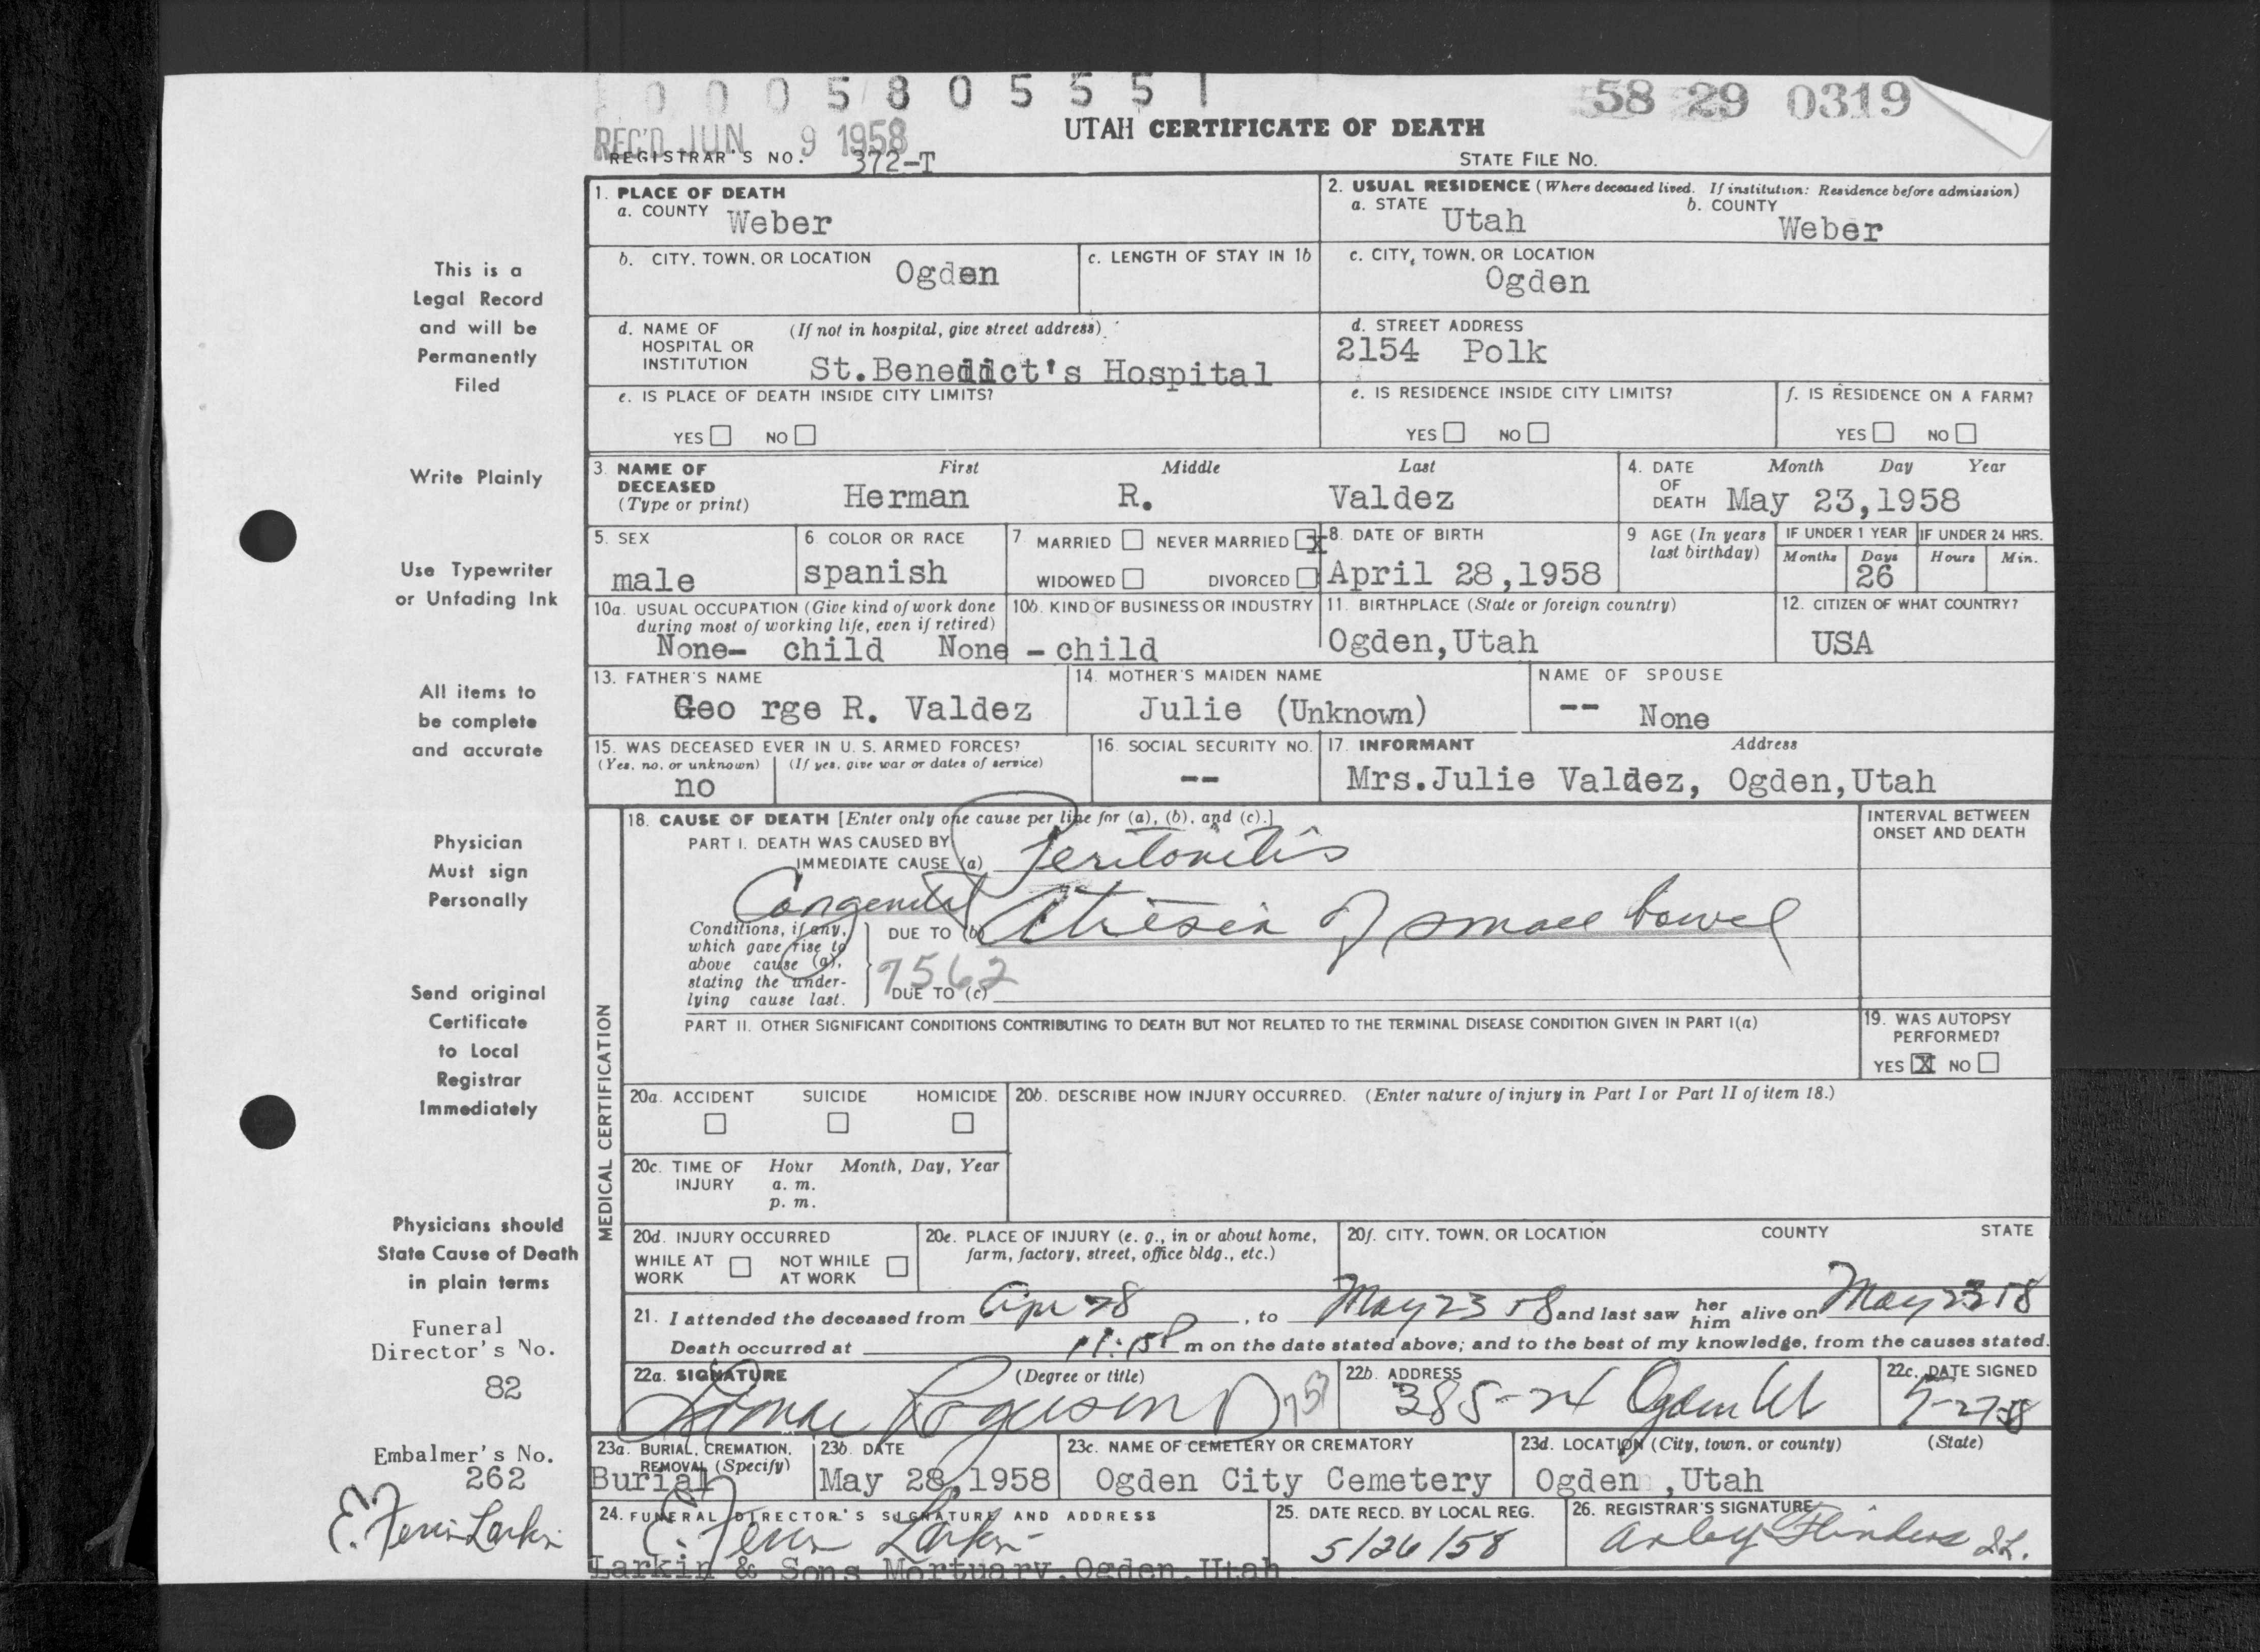 0 0 0 5 8 0 5 5 5 1
58 29 0319
REC'D JUN 9 1958
UTAH CERTIFICATE OF DEATH
REGISTRAR'S NO. 372-T
STATE FILE NO.
1. PLACE OF DEATH
a. COUNTY Weber
2. USUAL RESIDENCE (Where deceased lived. If institution: Residence before admission)
a. STATE Utah b. COUNTY Weber
b. CITY, TOWN, OR LOCATION Ogden
c. LENGTH OF STAY IN 1b
c. CITY, TOWN, OR LOCATION
Ogden
d. NAME OF HOSPITAL OR INSTITUTION (If not in hospital, give street address)
St.Benedict's Hospital
d. STREET ADDRESS
2154 Polk
e. IS PLACE OF DEATH INSIDE CITY LIMITS?
YES NO
e. IS RESIDENCE INSIDE CITY LIMITS?
YES NO
f. IS RESIDENCE ON A FARM?
YES NO
3. NAME OF DECEASED (Type or print)
First Middle Last
Herman R. Valdez
4. DATE OF DEATH Month Day Year
May 23,1958
5. SEX
male
6. COLOR OR RACE
spanish
7. MARRIED NEVER MARRIED X
WIDOWED DIVORCED
8. DATE OF BIRTH
April 28,1958
9 AGE (In years last birthday)
IF UNDER 1 YEAR
Months Days
26
IF UNDER 24 HRS.
Hours Min.
10a. USUAL OCCUPATION (Give kind of work done during most of working life, even if retired)
None- child
10b. KIND OF BUSINESS OR INDUSTRY
None - child
11. BIRTHPLACE (State or foreign country)
Ogden,Utah
12. CITIZEN OF WHAT COUNTRY?
USA
13. FATHER'S NAME
Geo rge R. Valdez
14. MOTHER'S MAIDEN NAME
Julie (Unknown)
NAME OF SPOUSE
-- None
15. WAS DECEASED EVER IN U. S. ARMED FORCES?
(Yes, no, or unknown) (If yes, give war or dates of service)
no
16. SOCIAL SECURITY NO.
--
17. INFORMANT Address
Mrs.Julie Valdez, Ogden,Utah
MEDICAL CERTIFICATION
18. CAUSE OF DEATH [Enter only one cause per line for (a), (b), and (c).]
PART I. DEATH WAS CAUSED BY
IMMEDIATE CAUSE (a) Peritonitis
INTERVAL BETWEEN ONSET AND DEATH
Conditions, if any, which gave rise to above cause (a), stating the underlying cause last.
DUE TO (b) Congenital Atresia of small bowel
7562
DUE TO (c)
PART II. OTHER SIGNIFICANT CONDITIONS CONTRIBUTING TO DEATH BUT NOT RELATED TO THE TERMINAL DISEASE CONDITION GIVEN IN PART I(a)
19. WAS AUTOPSY PERFORMED?
YES X NO
20a. ACCIDENT SUICIDE HOMICIDE
20b. DESCRIBE HOW INJURY OCCURRED. (Enter nature of injury in Part I or Part II of item 18.)
20c. TIME OF INJURY Hour Month, Day, Year
a. m.
p. m.
20d. INJURY OCCURRED
WHILE AT WORK NOT WHILE AT WORK
20e. PLACE OF INJURY (e. g., in or about home, farm, factory, street, office bldg., etc.)
20f. CITY, TOWN, OR LOCATION COUNTY STATE
21. I attended the deceased from Apr 28, to May 23 58 and last saw her him alive on May 23 58
Death occurred at 11:15 P m on the date stated above; and to the best of my knowledge, from the causes stated.
22a. SIGNATURE (Degree or title)
22b. ADDRESS
385-24 Ogden Ut
22c. DATE SIGNED
5-27-58
23a. BURIAL, CREMATION, REMOVAL (Specify)
Burial
23b. DATE
May 28,1958
23c. NAME OF CEMETERY OR CREMATORY
Ogden City Cemetery
23d. LOCATION (City, town, or county) (State)
Ogden ,Utah
24. FUNERAL DIRECTOR'S SIGNATURE AND ADDRESS
E. Ferrin Larkin
Larkin & Sons Mortuary,Ogden,Utah
25. DATE RECD. BY LOCAL REG.
5/26/58
26. REGISTRAR'S SIGNATURE
Arley Flinders
This is a
Legal Record
and will be
Permanently
Filed
Write Plainly
Use Typewriter
or Unfading Ink
All items to
be complete
and accurate
Physician
Must sign
Personally
Send original
Certificate
to Local
Registrar
Immediately
Physicians should
State Cause of Death
in plain terms
Funeral
Director's No.
82
Embalmer's No.
262
E. Ferrin Larkin